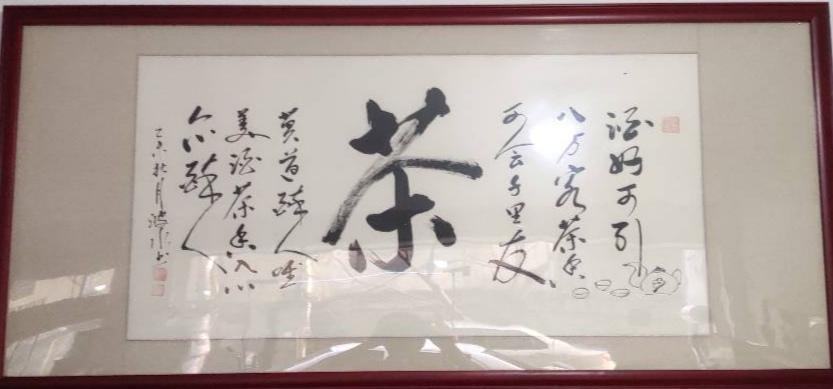 酒好可引
八方客茶香
可会千里友
茶
莫道醉人唯
美酒茶香入心
亦醉人
秋月
书